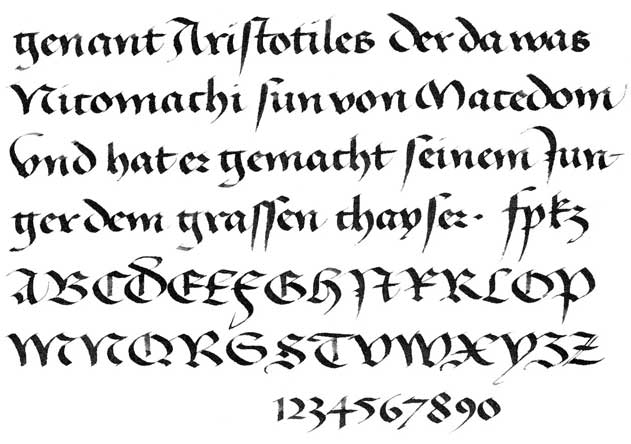 genant Ariſtotiles der da was
Nicomachi ſun von Macedom
Vnd hat er gemacht ſeinem Jun-
ger dem graſſen chayſer. ſpkz
ABCDEEFGHIKKLOP
MNQRSSTVWXYZZ
1234567890